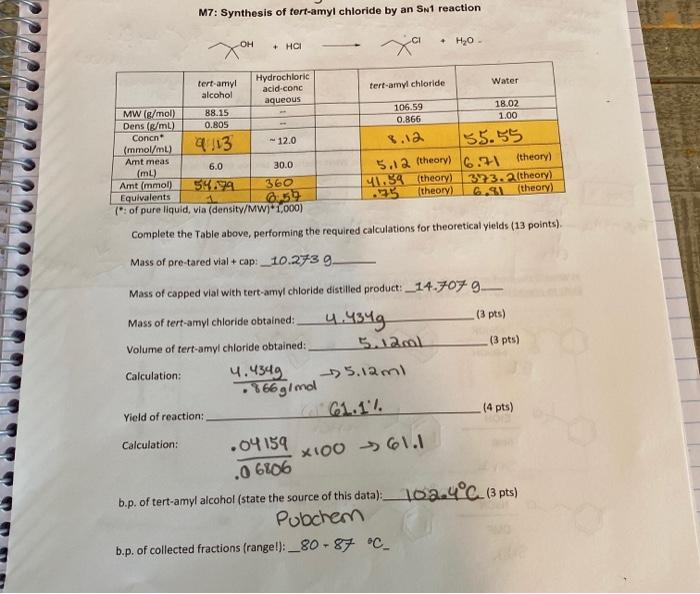 M7: Synthesis of tert-amyl chloride by an SN1 reaction
OH + HCl Cl + H₂O
tert-amyl alcohol Hydrochloric acid-conc aqueous tert-amyl chloride Water
MW (g/mol) 88.15 -- 106.59 18.02
Dens (g/mL) 0.805 -- 0.866 1.00
Concn* (mmol/mL) 9.13 ~ 12.0 8.12 55.55
Amt meas (mL) 6.0 30.0 5.12 (theory) 6.71 (theory)
Amt (mmol) 54.79 360 41.59 (theory) 373.2 (theory)
Equivalents 1 6.57 .75 (theory) 6.81 (theory)
(*: of pure liquid, via (density/MW)*1,000)
Complete the Table above, performing the required calculations for theoretical yields (13 points).
Mass of pre-tared vial + cap: 10.273 g
Mass of capped vial with tert-amyl chloride distilled product: 14.707 g
Mass of tert-amyl chloride obtained: 4.434g (3 pts)
Volume of tert-amyl chloride obtained: 5.12ml (3 pts)
Calculation: 4.434g → 5.12ml
.866g/mol
Yield of reaction: 61.1% (4 pts)
Calculation: .04159 x100 → 61.1
.06806
b.p. of tert-amyl alcohol (state the source of this data): 102.4°C (3 pts)
Pubchem
b.p. of collected fractions (range!): 80 - 87 °C